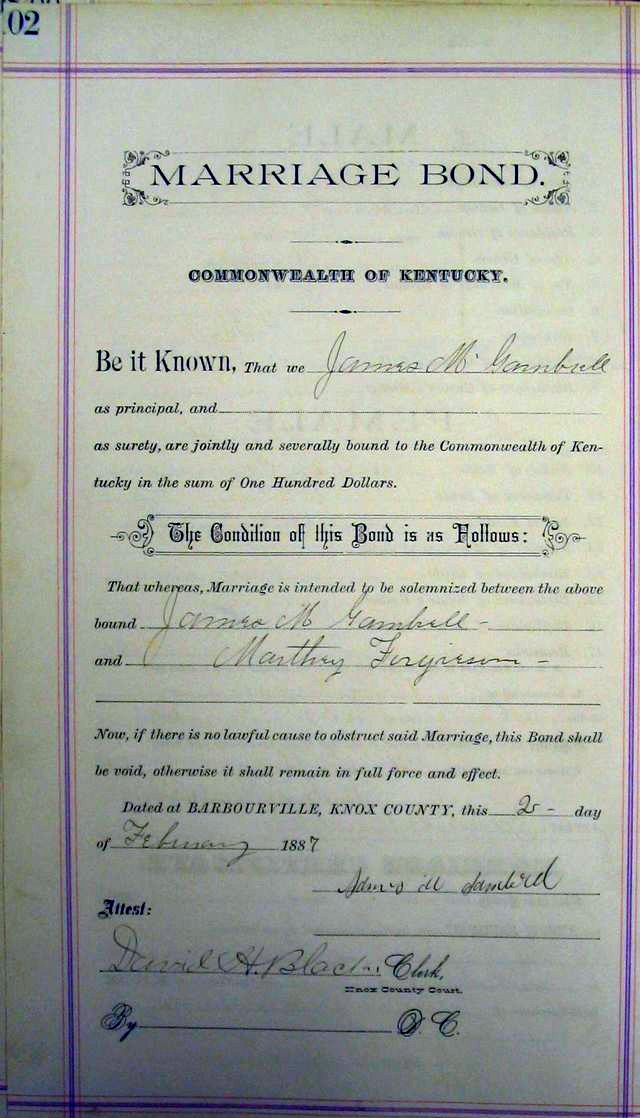 02
MARRIAGE BOND.
COMMONWEALTH OF KENTUCKY.
Be it Known, That we James M Gambrell
as principal, and
as surety, are jointly and severally bound to the Commonwealth of Ken-
tucky in the sum of One Hundred Dollars.
The Condition of this Bond is as Follows:
That whereas, Marriage is intended to be solemnized between the above
bound James M Gambrell -
and Marthey Forgieson -
Now, if there is no lawful cause to obstruct said Marriage, this Bond shall
be void, otherwise it shall remain in full force and effect.
Dated at BARBOURVILLE, KNOX COUNTY, this 2 - day
of February 1887
James M Gambrell
Attest:
David H. Black Clerk,
Knox County Court.
By D. C.